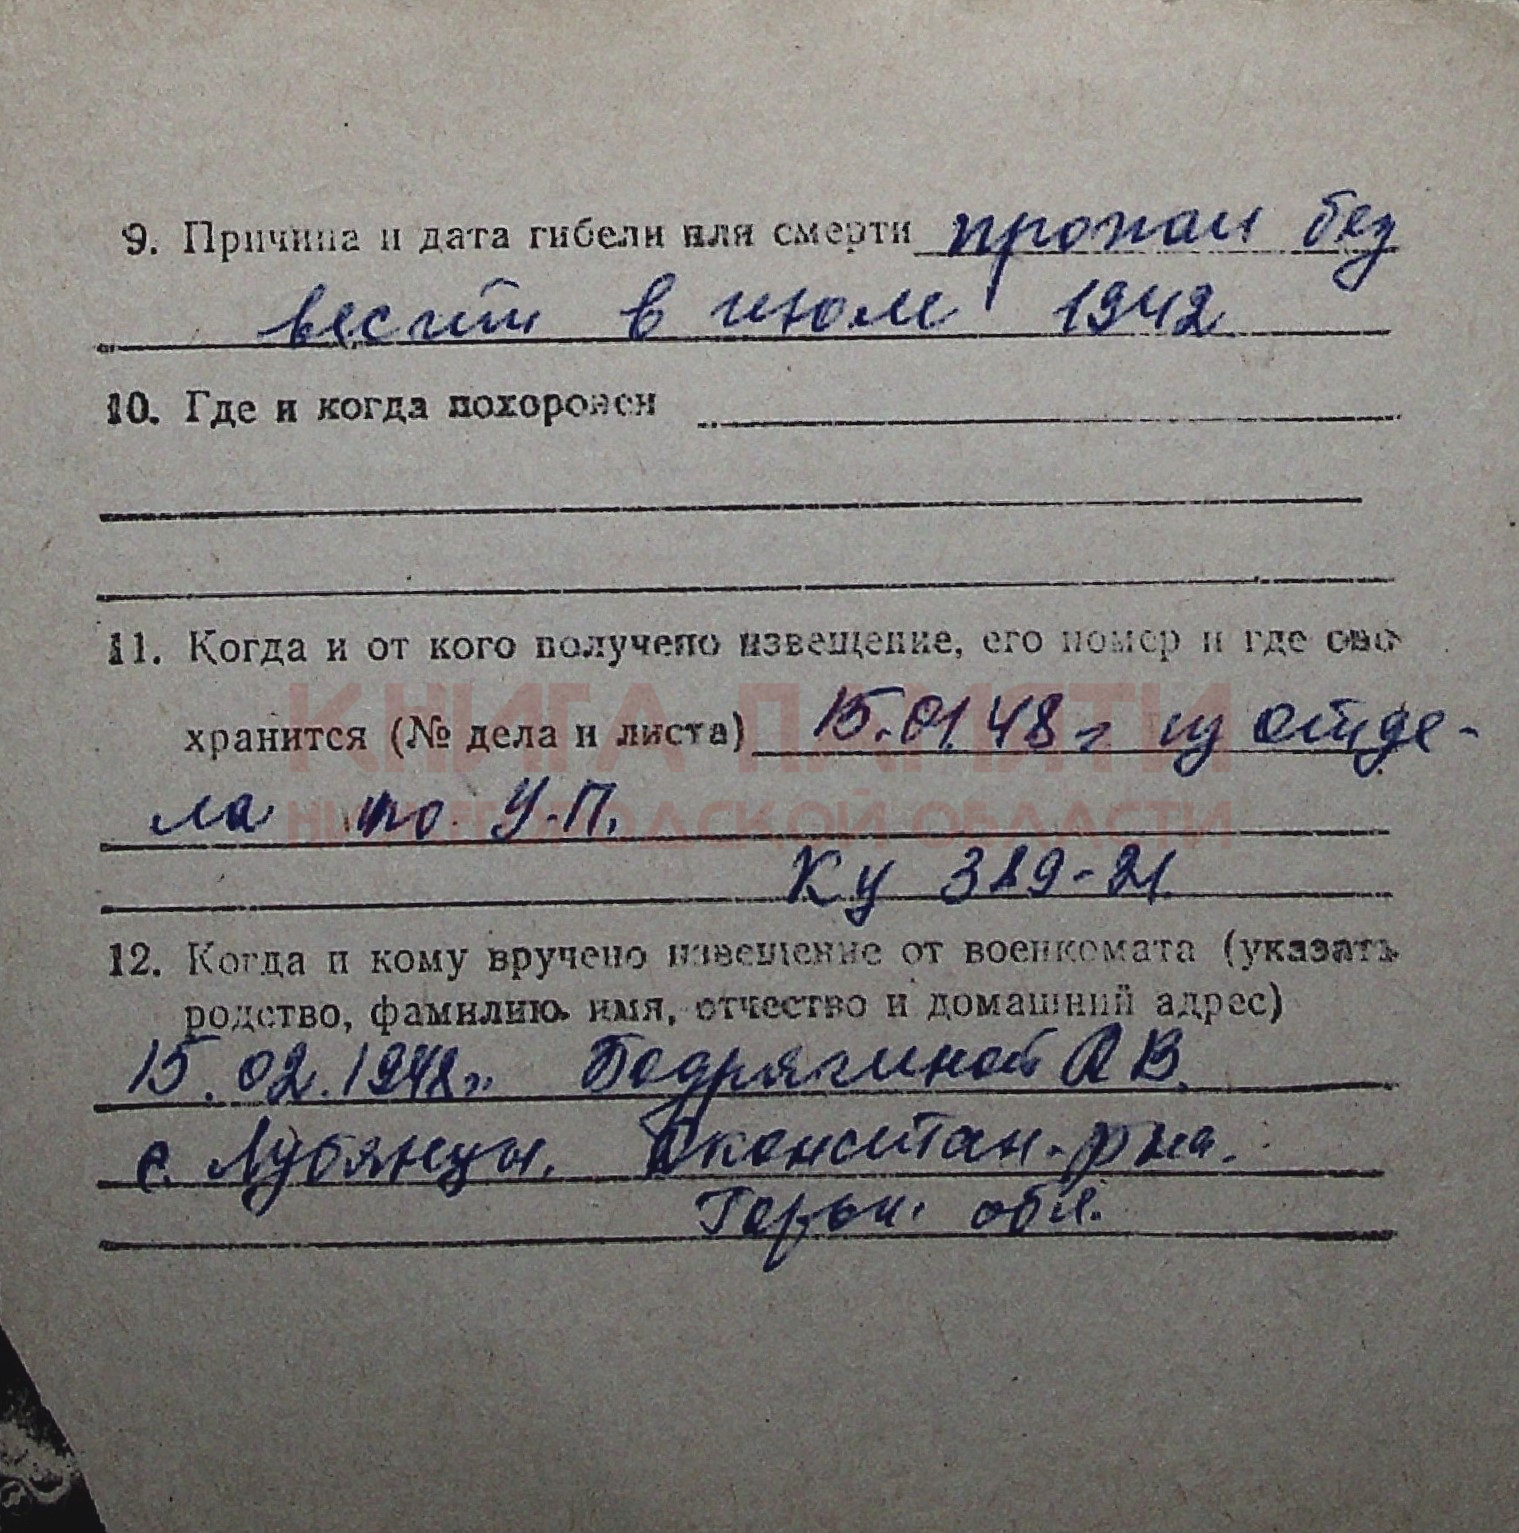 9. Причина и дата гибели или смерти пропал без
вести в июле 1942
10. Где и когда похоронен
11. Когда и от кого получено извещение, его номер и где оно
КНИГА ПАМЯТИ
хранится (№ дела и листа) 15.01.48 г из отде-
НИЖЕГОРОДСКОЙ ОБЛАСТИ
ла по У.П.
Ку 389-21
12. Когда и кому вручено извещение от военкомата (указать
родство, фамилию, имя, отчество и домашний адрес)
15.02.1948г. Бодрягиной А В.
с. Лубянцы, Дконстан. р-на.
Горьк. обл.